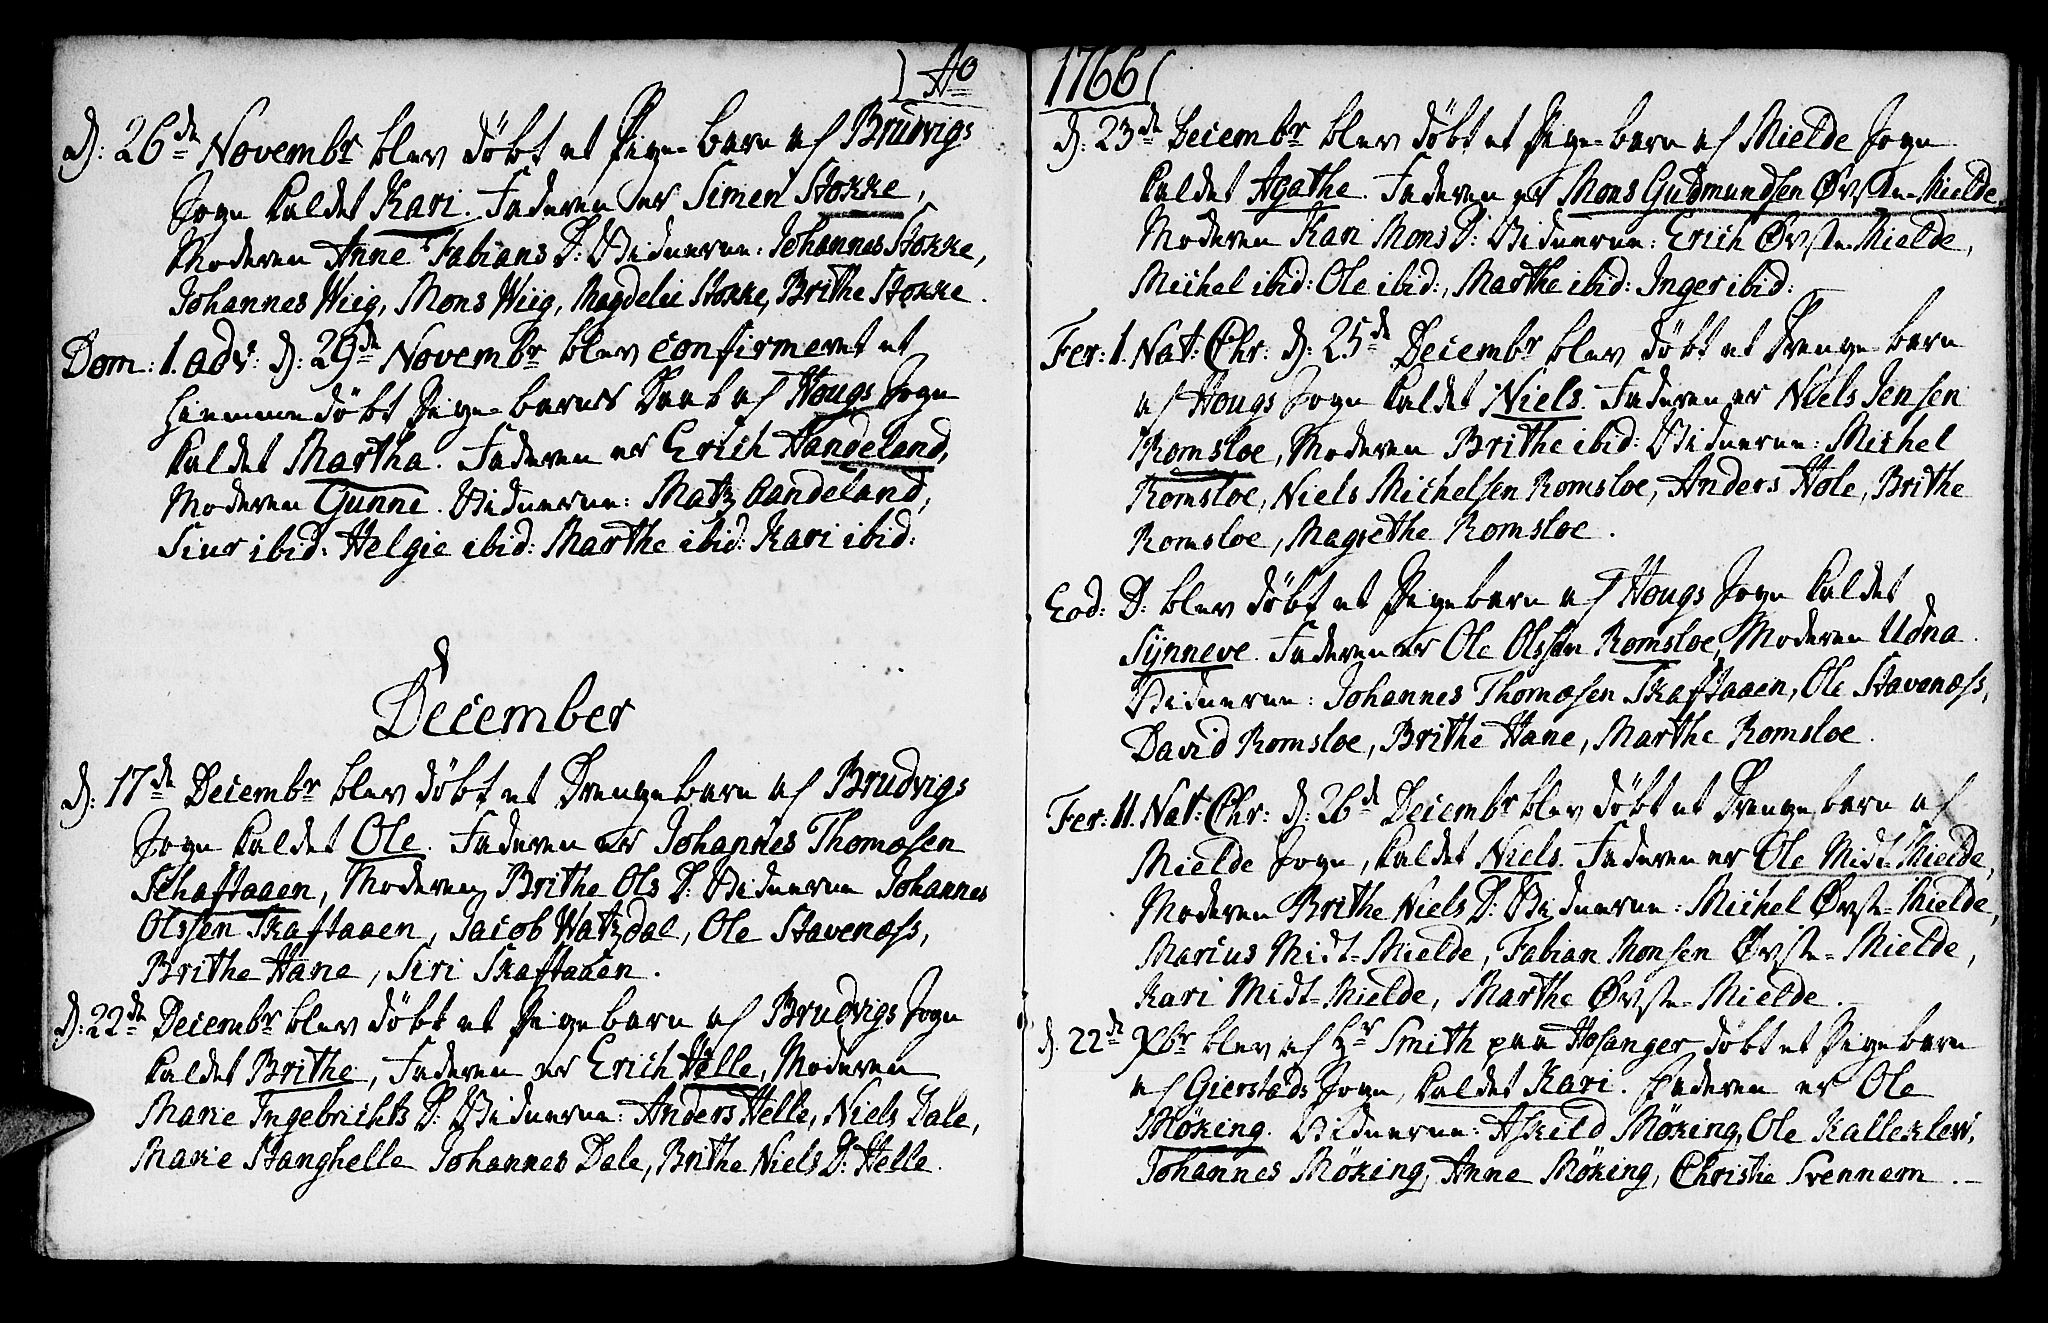 Ao
d: 26de Novembr blev døbt et Pige-barn af Brudvigs
Sogn kaldet Kari. Faderen er Simen Stokke,
Moderen Anne Fabians D: Vidnerne: Johannes Stokke,
Johannes Wiig, Mons Wiig, Magdeli Stokke, Brithe Stokke.
Dom: 1. adv: d: 29de Novembr blev confirmeret et
hiemmedøbt Pige-barns Daab af Hougs Sogn
kaldet Martha. Faderen er Erich Handeland,
Moderen Gunne. Vidnerne: Matz Handeland,
Siur ibid: Helgie ibid: Marthe ibid: Kari ibid:
December
d: 17de Decembr blev døbt et Drengebarn af Brudvigs
Sogn kaldet Ole. Faderen er Johannes Thomæsen
Schaftaaen, Moderen Brithe Ols D: Vidnerne Johannes
Olssen Skaftaaen, Jacob Watzdal, Ole Stavenæss,
Brithe Hane, Siri Skaftaaen.
d: 22de Decembr blev døbt et Pigebarn af Brudvigs Sogn
kaldet Brithe, Faderen er Erich Helle, Moderen
Marie Ingebrichts D: Vidnerne: Anders Helle, Niels Dale,
Marie Stanghelle Johannes Dale, Brithe Niels D: Helle.
1766
d: 23de Decembr blev døbt et Pige-barn af Mielde Sogn
kaldet Agathe. Faderen er Mons Gudmundsen Øvste-Mielde,
Moderen Kari Mons D: Vidnerne: Erich Øvste-Mielde,
Michel ibid: Ole ibid:, Marthe ibid: Inger ibid:
Fer: 1. Nat: Chr: d: 25de Decembr blev døbt et Drenge-barn
af Hougs Sogn kaldet Niels. Faderen er Niels Jensen
Romsloe, Moderen Brithe ibid: Vidnerne: Michel
Romsloe, Niels Michelsen Romsloe, Anders Hole, Brithe
Romsloe, Magrethe Romsloe.
Eod: D: blev døbt et Pigebarn af Hougs Sogn kaldet
Synneve. Faderen er Ole Olssen Romsloe, Moderen Udna.
Vidnerne: Johannes Thomæsen Skaftaaen, Ole Stavenæss,
David Romsloe, Brithe Hane, Marthe Romsloe.
Fer: 11. Nat: Chr: d: 26de Decembr blev døbt et Drengebarn af
Mielde Sogn, kaldet Niels. Faderen er Ole Midt-Mielde,
Moderen Brithe Niels D: Vidnerne: Michel Øvste-Mielde,
Marcus Midt-Mielde, Fabian Monsen Øvste-Mielde,
Kari Midt-Mielde, Marthe Øvste-Mielde.
d. 22de Xbr blev af Hr Smith paa Hosanger døbt et Pigebarn
af Gierstads Sogn, kaldet Kari. Faderen er Ole
Møking. Vidnerne: Askild Møking, Ole Kalleklev,
Johannes Møking, Anne Møking, Christie Svennem.